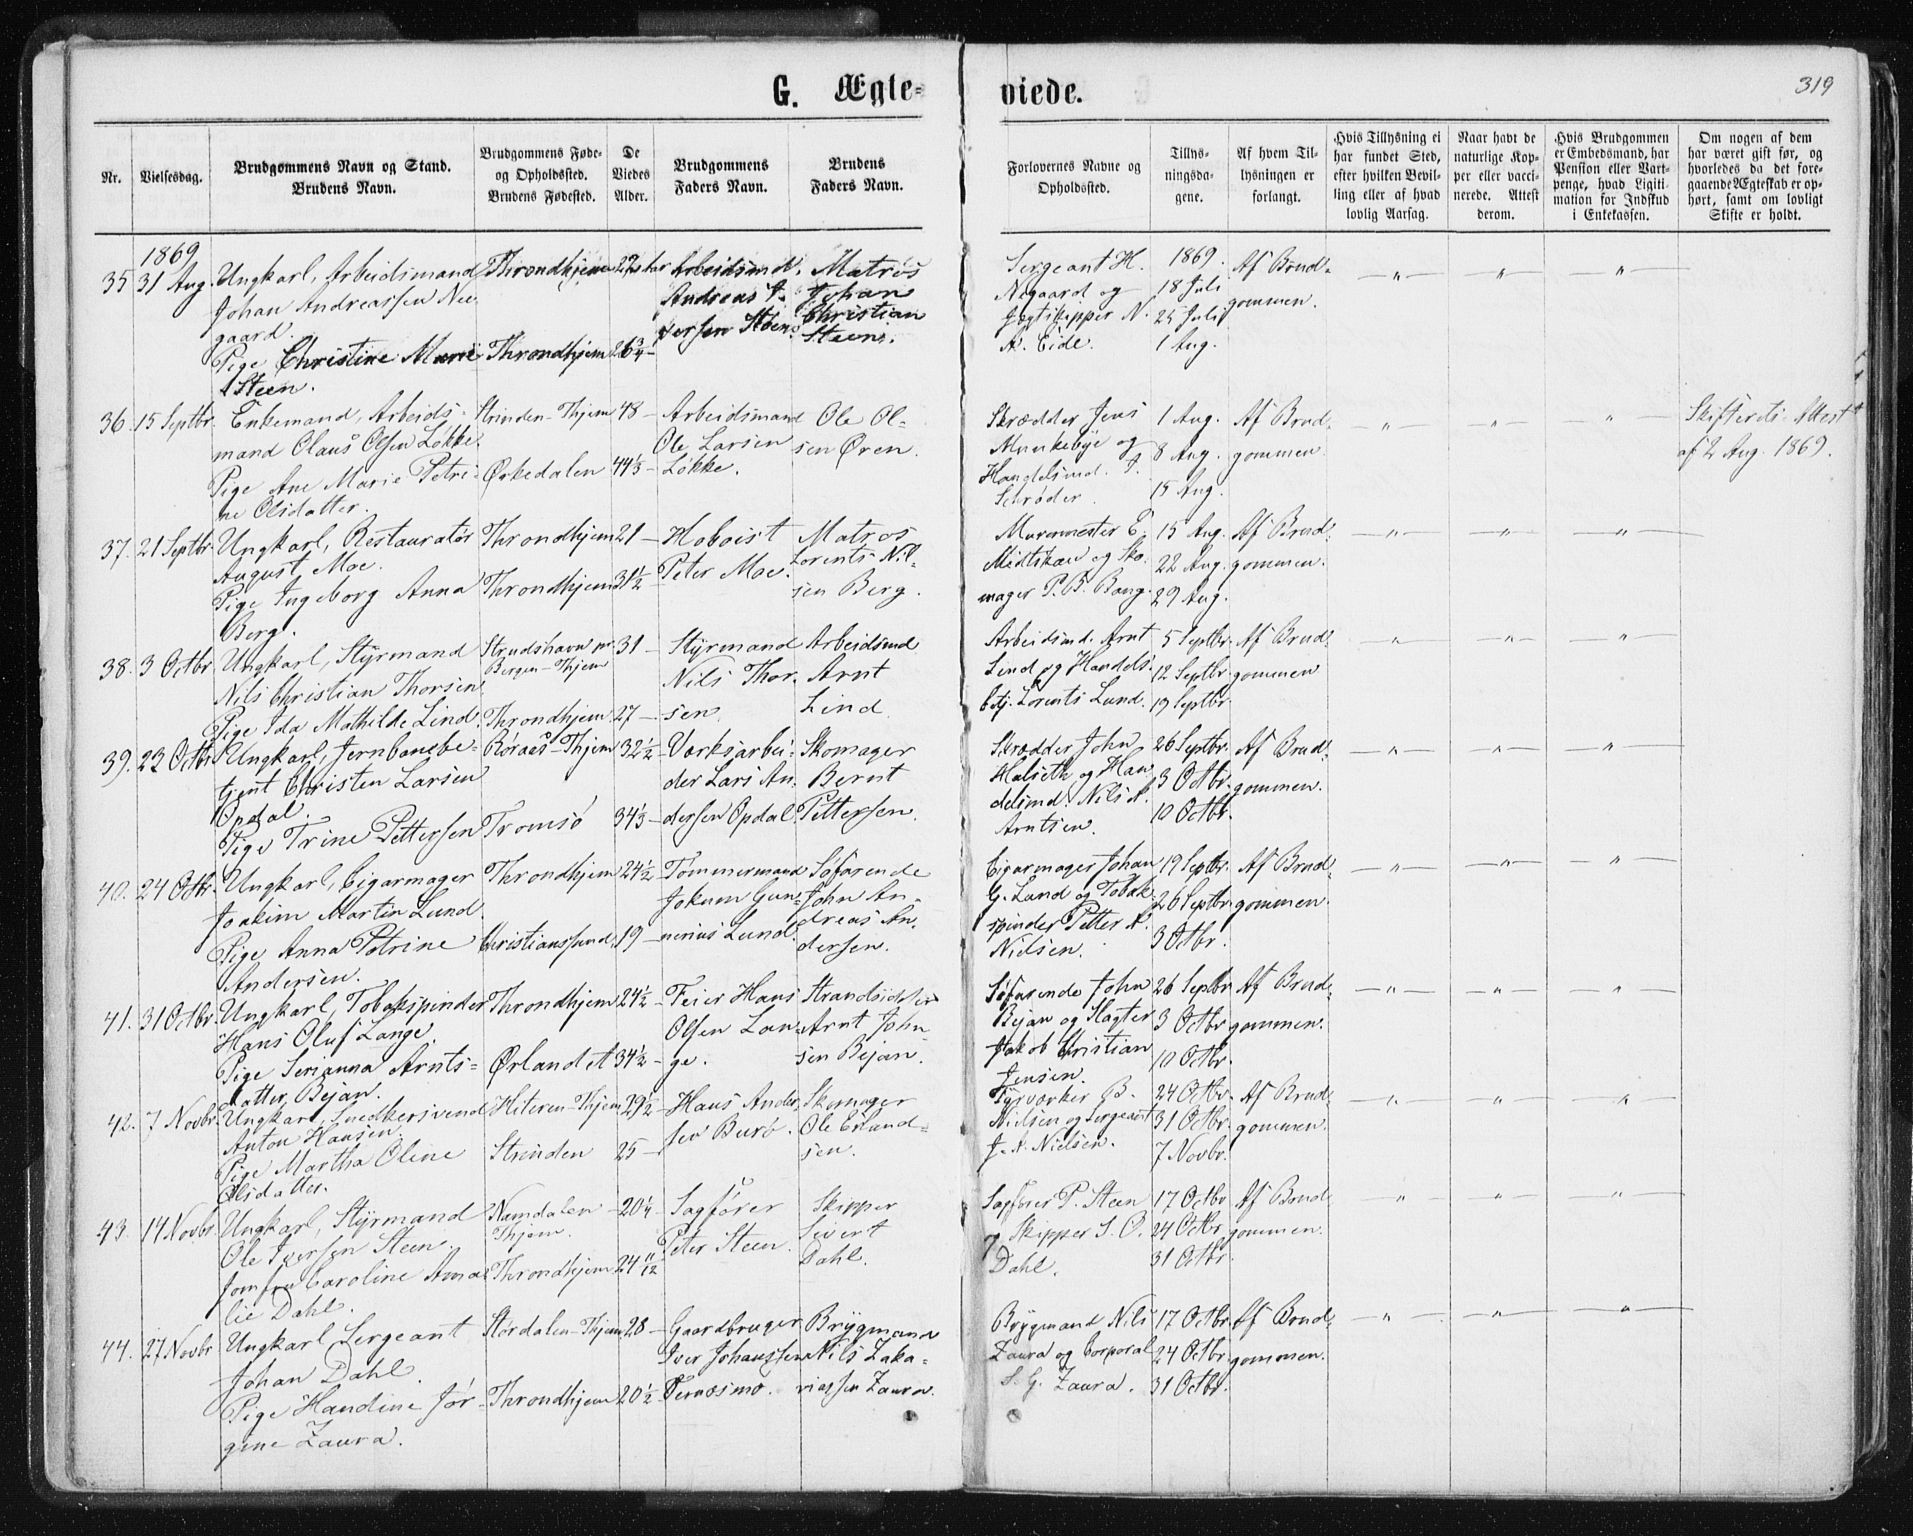 319
G. Ægte-
viede.
Nr.
Vielsesdag.
Brudgommens Navn og Stand.
Brudens Navn.
Brudgommens Føde-
og Opholdssted.
Brudens Fødested.
De
Viedes
Alder.
Brudgommens
Faders Navn.
Brudens
Faders Navn.
Forlovernes Navne og
Opholdssted.
Tillys-
ningsda-
gene.
Af hvem Til-
lysningen er
forlangt.
Hvis Tillysning ei
har fundet Sted,
efter hvilken Bevil-
ling eller af hvad
lovlig Aarsag.
Naar havt de
naturlige Kop-
per eller vacci-
nerede. Attest
derom.
Hvis Brudgommen
er Embedsmand, har
Pension eller Vart-
penge, hvad Ligiti-
mation for Indskud
i Enkekassen.
Om nogen af dem
har været gift før, og
hvorledes da det fore-
gaaende Ægteskab er op-
hørt, samt om lovligt
Skifte er holdt.
1869
35
31 Aug.
Ungkarl, Arbeidsmand
Johan Andreassen Nee
gaard.
Pige Christine Marie
Steen.
Throndhjem
Throndhjem
26 3/4
Arbeidsmd.
Andreas
Matros
Johan
Christian
Steen.
Sergeant H.
Negaard og
Jægtskipper N.
A. Eide.
1869.
18 Juli
25 Juli
1 Aug.
Af Brud-
gommen.
36.
15 Septbr.
Enkemand, Arbeids-
mand Olaus Olsen Løkke
Pige Ane Marie Petri-
ne Olsdatter.
Strinden-Thjem
Ørkedalen
48
44 1/3
Arbeidsmand
Ole Larsen
Løkke.
Ole Ol-
sen Øren.
Skrædder Jens
Munkebye og
Handelsmd. J.
Schrøder.
1 Aug.
8 Aug.
15 Aug.
Af Brud-
gommen.
Skifterets Attest
af 2 Aug. 1869.
37.
21 Septbr.
Ungkarl, Restauratør
August Moe.
Pige Ingeborg Anna
Berg.
Throndhjem
Throndhjem
21
31 1/2
Hoboist
Peter Moe.
Matros
Lorents Nil-
sen Berg.
Murermester E.
Midtskau og Sko-
mager P. B. Bang.
15 Aug.
22 Aug.
29 Aug.
Af Brud-
gommen.
38.
3 Octbr
Ungkarl, Styrmand
Nils Christian Thorsen
Pige Ida Mathilde Lind.
Strudshavn pr
Bergen-Thjem
Throndhjem
31
27
Styrmand
Nils Thor-
sen.
Arbeidsmd
Arnt
Lind
Arbeidsmd. Arnt
Lind og Handels-
betj. Lorents Lund.
5 Septbr.
12 Septbr
19 Septbr
Af Brud-
gommen
39.
23 Octbr
Ungkarl, Jernbanebe-
tjent Christen Larsen
Opdal.
Pige Trine Pettersen
Røraes-Thjem
Tromsø
32 1/2
34 1/3
Værksarbei-
der Lars An-
dersen Opdal.
Skomager
Bernt
Pettersen.
Skrædder John
Halseth og Han
delsmd. Nils A.
Arntsen.
26 Septbr.
3 Octbr.
10 Octbr.
Af Brud-
gommen.
40.
24 Octbr.
Ungkarl, Cigarmager
Joakim Martin Lund.
Pige Anna Petrine
Andersen.
Throndhjem
Christianssund
24 1/2
19
Tømmermand
Jokum Gun-
nerius Lund.
Søfarende
John An-
dreas An-
dersen.
Cigarmager Johan
G. Lund og Tobak-
spinder Petter A.
Nielsen.
19 Septbr.
26 Septbr.
3 Octbr.
Af Brud-
gommen.
41.
31 Octbr.
Ungkarl, Tobakspinder
Hans Oluf Lange.
Pige Serianna Arnts-
datter Bejan.
Throndhjem
Ørlandet
24 1/2
34 1/2
Feier Hans
Olsen Lan-
ge.
Strandsidder
Arnt John-
sen Bejan.
Søfarende John
Bejan og Slagter
Jakob Christian
Jensen.
26 Septbr
3 Octbr
10 Octbr.
Af Brud-
gommen.
42.
7 Novbr.
Ungkarl, Snedkersvend
Anton Hansen
Pige Martha Oline
Olsdatter.
Hiteren-Thjem
Strinden
29 1/2
25
Hans Ander-
sen Burø.
Skomager
Ole Erland-
sen.
Fyrvorker B.
Nielsen og Sergeant
J. A. Nielsen.
24 Octbr.
31 Octbr.
7 Novbr.
Af Brud-
gommen.
43.
14 Novbr.
Ungkarl, Styrmand
Ole Iversen Steen.
Jomfru Caroline Ama-
lie Dahl.
Namdalen
Thjem.
Throndhjem
20 1/4
24 11/12
Sagfører
Peter Steen.
Skipper
Sivert
Dahl.
Sagfører P. Steen
og Skipper S. O.
Dahl.
17 Octbr
24 Octbr
31 Octbr.
Af Brud-
gommen.
44.
27 Novbr
Ungkarl Sergeant
Johan Dahl.
Pige Handine Jør-
gine Zaura.
Størdalen-Thjem
Throndhjem
28
20 1/2
Gaardbruger
Iver Johanssen
Ternesmo.
Brygmand
Nils Zaka-
riassen Zaura.
Brygmand Nils
Zaura og Corporal
S. G. Zaura.
17 Octbr.
24 Octbr
31 Octbr.
Af Brud-
gommen.